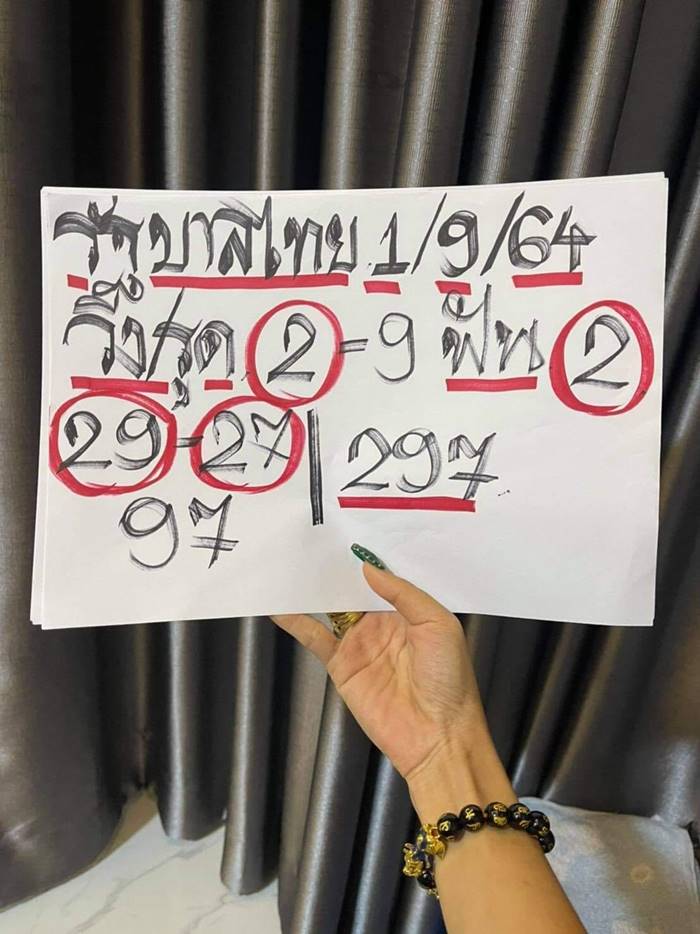 รัฐบาลไทย 1/9/64
วิ่ง/รูด 2-9 ฟัน 2
29-27 | 297
97